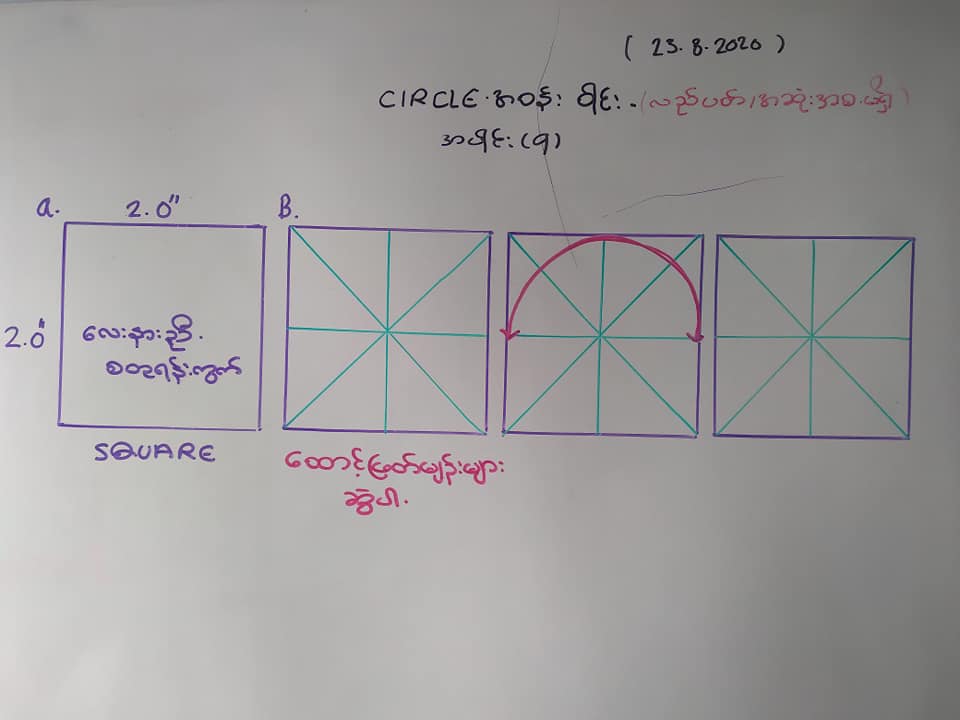 ( 23.8.2020 )
CIRCLE. အဝန်း ဝိုင်း. (လည်ပတ်/အဆုံးအစ မရှိ)
အပိုင်း (၅)
a. 2.0" B.
2.0"
လေးနားညီ.
စတုရန်းကွက်
SQUARE
ထောင့်ဖြတ်မျဉ်းများ
ဆွဲပါ.